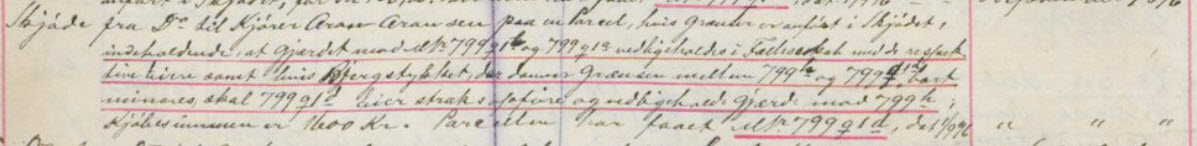 Skjøde fra Do til Kjører Aron Aronsen paa en Parcel, hvis Grænser er anført i Skjødet,
indeholdende, at Gjærdet mod M.Nr 799 q 1 b og 799 q 1 a vedligeholdes i Fællesskab med de respek-
tive Eiere samt hvis Bjergstykket, der danner Grænsen mellem 799 h og 799 q 1 d, bort
mineres, skal 799 q 1 d Eier straks opføre og vedligeholde Gjærde mod 799 h,
Kjøbesummen er 1600 Kr. Parcellen har faaet M.Nr. 799 q 1 d, dat 1/9 96 " " "